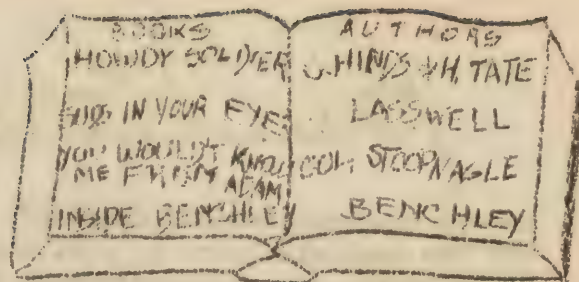 BOOKS
HOWDY SOLDIER
SUDS IN YOUR EYE
YOU WOULDN'T KNOW
ME FROM
ADAM
INSIDE BENCHLEY
AUTHORS
HINDS & H. TATE
LASSWELL
COL. STOOPNAGLE
BENCHLEY